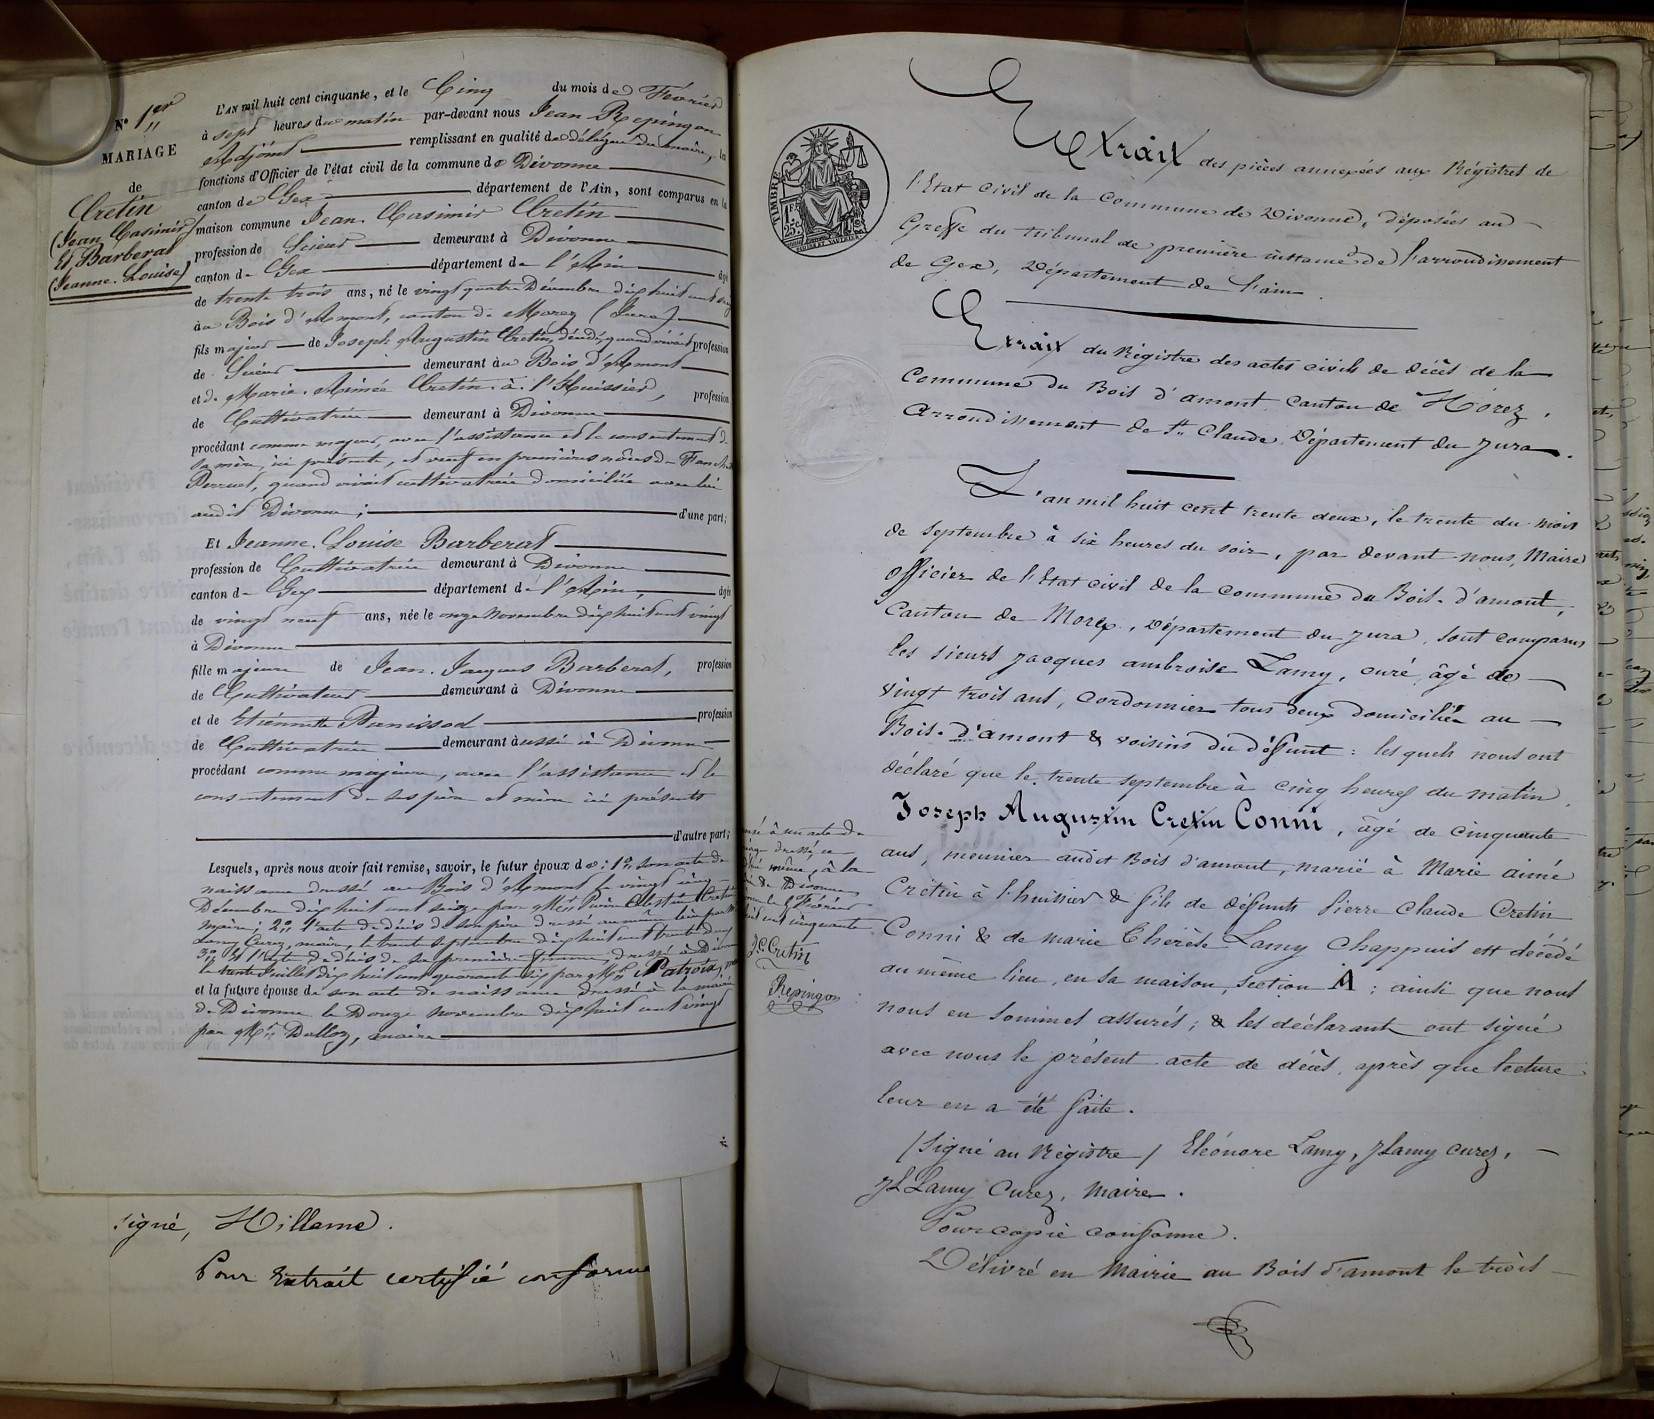 N° 1er
MARIAGE
de
Cretin
(Jean Casimir)
Et Barberat
(Jeanne-Louise)
L'AN mil huit cent cinquante, et le Cinq du mois de Février
à sept heures du matin par-devant nous Jean Repingon
Adjoint remplissant en qualité de délégué du maire, les
fonctions d'Officier de l'état civil de la commune de Divonne
canton de Gex département de l'Ain, sont comparus en la
maison commune Jean-Casimir Cretin
profession de Scieur demeurant à Divonne
canton de Gex département de l'Ain âgé
de trente trois ans, né le vingt quatre Décembre dix huit cent
au Bois d'Amont, canton de Morez (Jura)
fils majeur de Joseph Augustin Cretin, décédé, quand vivait profession
de Scieur demeurant au Bois d'Amont
et de Marie-Aimée Cretin-à-l'Huissier, profession
de Cultivatrice demeurant à Divonne
procédant comme majeur, avec l'assistance et le consentement de
sa mère, ici présente, et veuf en premières nôces de
Perruet, quand vivait cultivatrice domiciliée avec lui
audit Divonne; d'une part;
Et Jeanne-Louise Barberat
profession de Cultivatrice demeurant à Divonne
canton de Gex département de l'Ain, âgée
de vingt neuf ans, née le onze Novembre dix huit cent vingt
à Divonne
fille majeure de Jean-Jacques Barberat, profession
de Cultivateur demeurant à Divonne
et de Etiennette Panissod profession
de Cultivatrice demeurant aussi à Divonne
procédant comme majeure, avec l'assistance et le
consentement de ses père et mère ici présents
d'autre part;
Lesquels, après nous avoir fait remise, savoir, le futur époux de: 1° son acte de
naissance dressé au Bois d'Amont le vingt cinq
Décembre dix huit cent seize par Mr Pierre Célestin Cretin
maire; 2° l'acte de décès de son père dressé au même lieu par Mr
Lamy Curez, maire, le trente septembre dix huit cent trente deux
3° Et l'acte de décès de sa première femme, dressé à Divonne
le trente Juillet dix huit cent quarante six par Mr Patrois,
et la future épouse de son acte de naissance dressé à la mairie
de Divonne le Douze novembre dix huit cent vingt
par Mr Dalloz, maire
signé, Hillame.
Pour Extrait certifié conforme
TIMBRE
1 F.
25 c.
Extrait des pièces annexées aux Régistres de
l'Etat Civil de la Commune de Divonne, déposées au
Greffe du tribunal de première instance de l'arrondissement
de Gex, Département de l'ain.
Extrait du Régistre des actes civils de décès de la
Commune du Bois d'amont, Canton de Morez,
arrondissement de St Claude, Département du Jura.
L'an mil huit cent trente deux, le trente du mois
de Septembre à six heures du soir, par devant nous, Maire
officier de l'Etat civil de la commune du Bois-d'amont,
Canton de Morez, Département du Jura, sont comparus
les sieurs Jacques ambroise Lamy, curé, âgé de
vingt trois ans, cordonnier tous deux domiciliés au
Bois-d'amont & voisins du défunt: lesquels nous ont
déclaré que le trente septembre à cinq heures du matin,
Joseph Augustin Cretin Conni, âgé de cinquante
ans, meunier audit Bois d'amont, marié à Marie aimé
Cretin à l'huissier & fils de défunts Pierre Claude Cretin
Conni & de marie Thérèse Lamy Chappuis est décédé
au même lieu, en sa maison, Section A; ainsi que nous
nous en sommes assurés; & les déclarants ont signé
avec nous le présent acte de décès, après que lecture
leur en a été faite.
/Signé au Régistre/ Eléonore Lamy, JLamy Curez,
JLLamy Curez, Maire.
Pour copie conforme.
Délivré en Mairie au Bois d'amont le trois
à un acte de
dressé, ce
même, à la
de Divonne
Février
cent cinquante
J.C. Cretin
Repingon